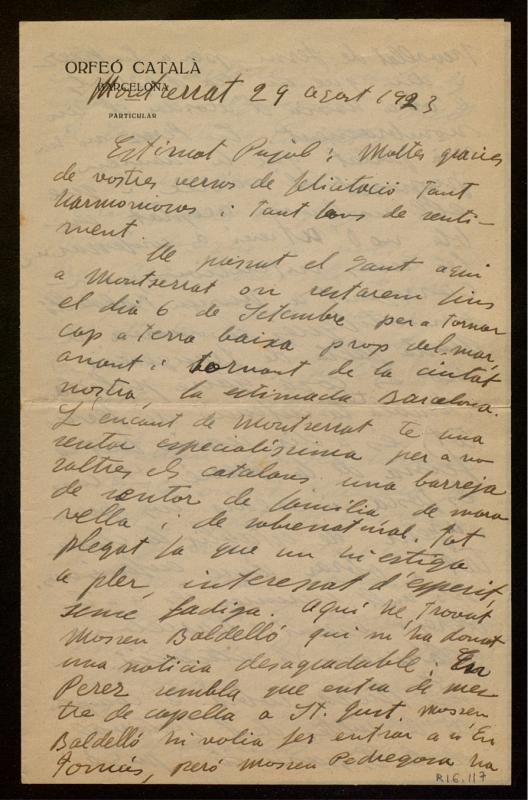 ORFEÓ CATALÀ
BARCELONA
PARTICULAR
Montserrat 29 agost 1923
Estimat Pujol: Moltes gracies
de vostres versos de felicitació tant
harmoniosos i tant bons de senti-
ment.
He passat el Sant aqui
a Montserrat on restarem fins
el dia 6 de Setembre per a tornar
cap a terra baixa prop del mar,
anant i tornant de la ciutat
nostra, la estimada Barcelona.
L'encant de Montserrat te una
sentor especialissima per a no
saltres els catalans una barreja
de sentor de familia de mara
vella i de sobrenatural. Tot
plegat fa que un hi estiga
a pler, interessat d'esperit,
sense fadiga. Aquí he trovat
Mossen Baldelló qui m'ha donat
una noticia desagradable: En
Perez sembla que entra de mes
tre de capella a St. Just. Mossen
Baldelló hi volia fer entrar a n'En
Tomás, però Mossen Pedragosa ha
R16.117